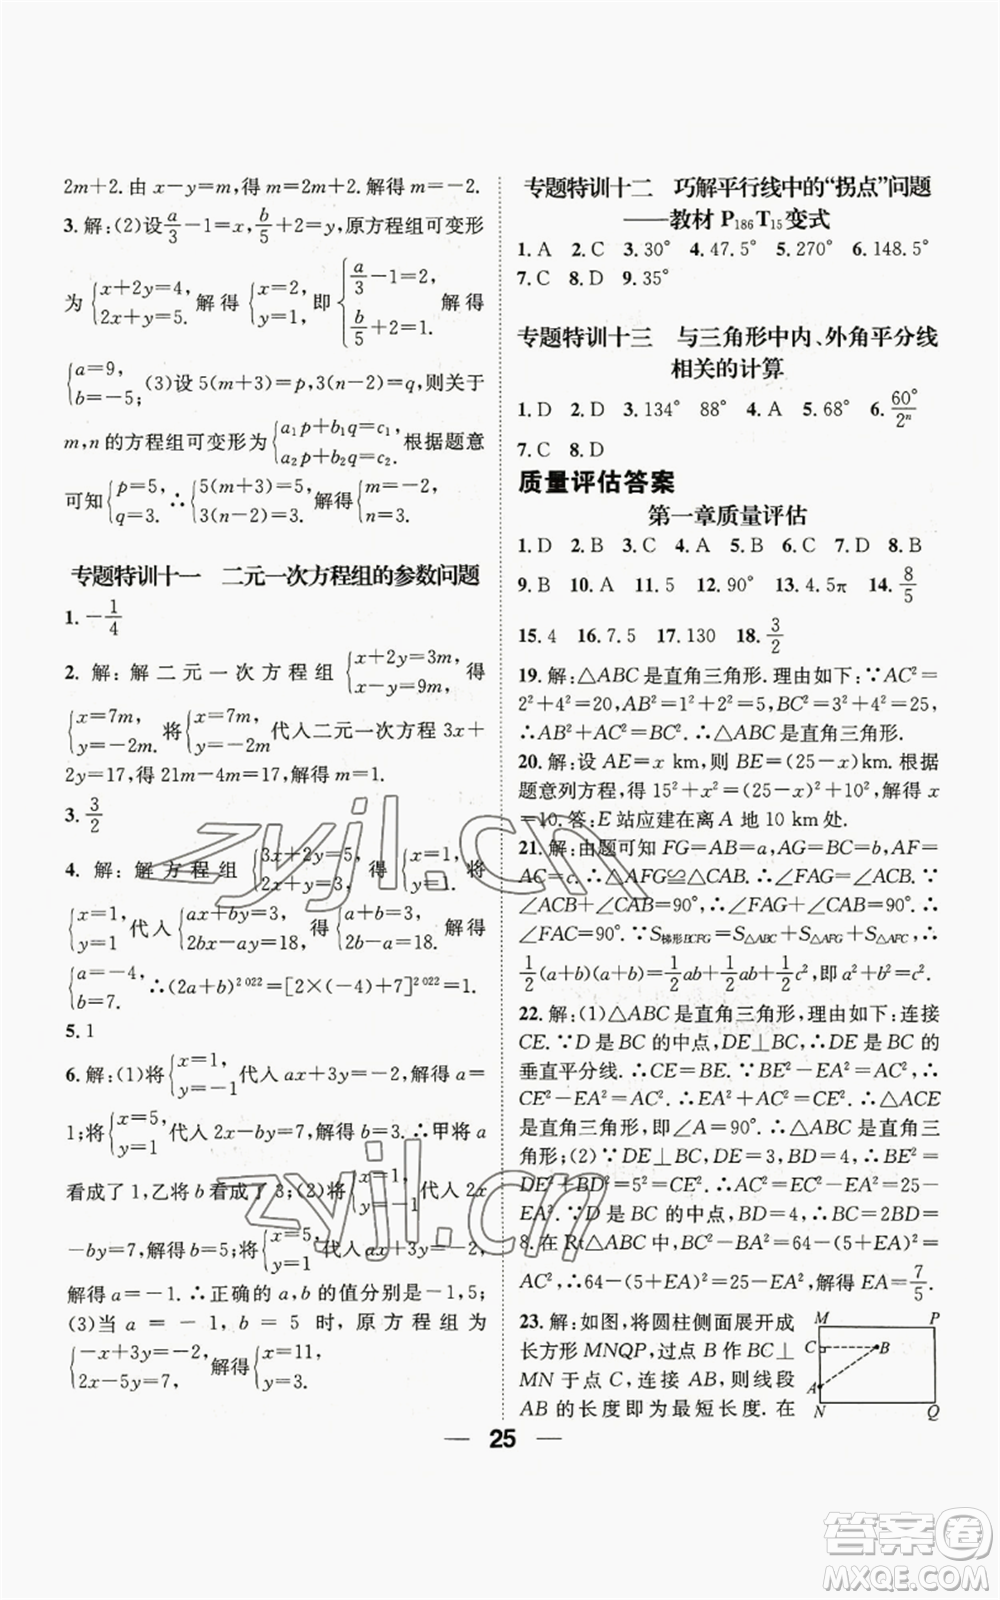 2m+2. 由 x-y=m, 得 m=2m+2. 解得 m=-2.
3. 解: (2)设 a/3-1=x, b/5+2=y, 原方程组可变形
为 {x+2y=4, 2x+y=5. 解得 {x=2, y=1, 即 {a/3-1=2, b/5+2=1. 解得
{a=9, b=-5; (3)设 5(m+3)=p, 3(n-2)=q, 则关于
m,n 的方程组可变形为 {a₁p+b₁q=c₁, a₂p+b₂q=c₂. 根据题意
可知 {p=5, q=3. ∴ {5(m+3)=5, 3(n-2)=3. 解得 {m=-2, n=3.
专题特训十一 二元一次方程组的参数问题
1. -1/4
2. 解: 解二元一次方程组 {x+2y=3m, x-y=9m, 得
{x=7m, y=-2m. 将 {x=7m, y=-2m 代入二元一次方程 3x+
2y=17, 得 21m-4m=17, 解得 m=1.
3. 3/2
4. 解: 解方程组 {3x+2y=5, 2x+y=3, 得 {x=1, y=1. 将
{x=1, y=1 代入 {ax+by=3, 2bx-ay=18, 得 {a+b=3, 2b-a=18. 解得
{a=-4, b=7. ∴(2a+b)²⁰²²=[2×(-4)+7]²⁰²²=1.
5. 1
6. 解: (1)将 {x=1, y=-1 代入 ax+3y=-2, 解得 a=
1; 将 {x=5, y=1 代入 2x-by=7, 解得 b=3. ∴甲将 a
看成了 1, 乙将 b 看成了 3; (2)将 {x=1, y=-1 代入 2x
-by=7, 解得 b=5; 将 {x=5, y=1 代入 ax+3y=-2,
解得 a=-1. ∴正确的 a,b 的值分别是-1,5;
(3)当 a=-1, b=5 时, 原方程组为
{-x+3y=-2, 2x-5y=7, 解得 {x=11, y=3.
专题特训十二 巧解平行线中的“拐点”问题
——教材 P₁₈₆T₁₅变式
1. A 2. C 3. 30° 4. 47.5° 5. 270° 6. 148.5°
7. C 8. D 9. 35°
专题特训十三 与三角形中内、外角平分线
相关的计算
1. D 2. D 3. 134° 88° 4. A 5. 68° 6. 60°/2ⁿ
7. C 8. D
质量评估答案
第一章质量评估
1. D 2. B 3. C 4. A 5. B 6. C 7. D 8. B
9. B 10. A 11. 5 12. 90° 13. 4.5π 14. 8/5
15. 4 16. 7.5 17. 130 18. 3/2
19. 解: △ABC 是直角三角形. 理由如下: ∵AC²=
2²+4²=20, AB²=1²+2²=5, BC²=3²+4²=25,
∴AB²+AC²=BC². ∴△ABC 是直角三角形.
20. 解: 设 AE=x km, 则 BE=(25-x)km. 根据
题意列方程, 得 15²+x²=(25-x)²+10², 解得 x
=10. 答: E 站应建在离 A 地 10 km处.
21. 解: 由题可知 FG=AB=a, AG=BC=b, AF=
AC=c. ∴△AFG≌△CAB. ∴∠FAG=∠ACB.
∵∠ACB+∠CAB=90°, ∴∠FAG+∠CAB=90°.
∴∠FAC=90°. ∵S梯形BCFG=S△ABC+S△AFG+S△AFC, ∴
1/2(a+b)(a+b)=1/2ab+1/2ab+1/2c², 即 a²+b²=c².
22. 解: (1)△ABC 是直角三角形, 理由如下: 连接
CE. ∵D 是 BC 的中点, DE⊥BC, ∴DE 是 BC 的
垂直平分线. ∴CE=BE. ∵BE²-EA²=AC²,
∴CE²-EA²=AC². ∴EA²+AC²=CE². ∴△ACE
是直角三角形, 即∠A=90°. ∴△ABC 是直角三
角形; (2)∵DE⊥BC, BD=4, DE=3, ∴BE²=
DE²+BD²=5²=25. ∴AC²=BE²-EA²=25-
EA². ∵D 是 BC 的中点, BD=4, ∴BC=2BD=
8. 在 Rt△ABC 中, BC²-BA²=64-(5+EA)²=
AC², ∴64-(5+EA)²=25-EA². 解得 EA=7/5.
23. 解: 如图, 将圆柱侧面展开成
长方形 MNQP, 过点 B 作 BC⊥
MN 于点 C, 连接 AB, 则线段
AB 的长度即为最短长度. 在
M P
C B
A
N Q
25
zyjl.cn
zyjl.cn
答案卷
MXQE.COM